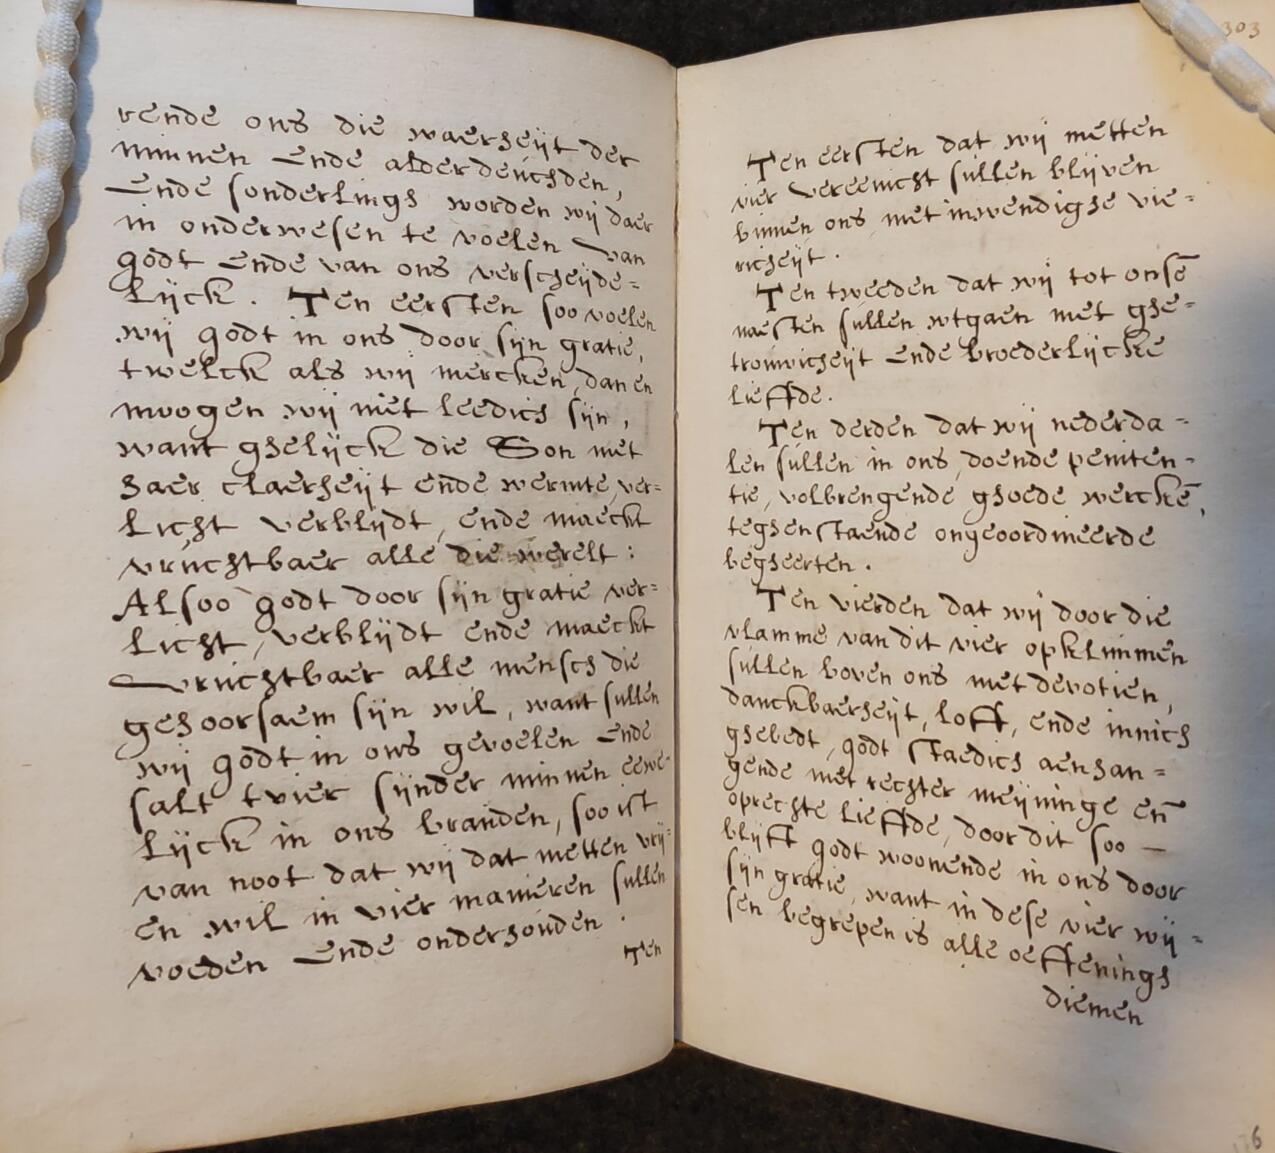 rende ons die waerheijt der
minnen Ende alderdeuchden,
Ende sonderlings worden wij daer
in onderwesen te voelen van
godt Ende van ons verscheijde=
lijck. Ten eersten soo voelen
wij godt in ons door sijn gratie,
twelck als wij mercken, dan en
moogen wij niet leedich sijn,
want ghelijck die Son met
haer claerheijt ende wermte, ver=
licht verblijdt, ende maeckt
vruchtbaer alle die werelt:
Alsoo godt door sijn gratie ver=
licht, verblijdt ende maeckt
vruchtbaer alle mensch die
gehoorsaem sijn wil, want sullen
wij godt in ons gevoelen Ende
salt tvier sijnder minnen eewe=
lijck in ons branden, soo ist
van noot dat wij dat metten vrij=
en wil in vier manieren sullen
voeden Ende onderhouden.
Ten
303
Ten eersten dat wij metten
vier vereenicht sullen blijven
binnen ons, met inwendighe vie=
richeijt.
Ten tweeden dat wij tot onsē
naesten sullen wtgaen met ghe=
trouwicheijt ende broederlijcke
lieffde.
Ten derden dat wij nederda=
len sullen in ons, doende peniten=
tie, volbrengende ghoede werckē,
teghenstaende ongeoordineerde
begheerten.
Ten vierden dat wij door die
vlamme van dit vier opklimmen
sullen boven ons met devotien,
danckbaerheijt, loff, ende innich
ghebedt, godt staedich aenhan=
gende met rechter meijninge en̄
oprechte lieffde, door dit soo —
blijft godt woonende in ons door
sijn gratie, want in dese vier wij=
sen begrepen is alle oeffenings
diemen